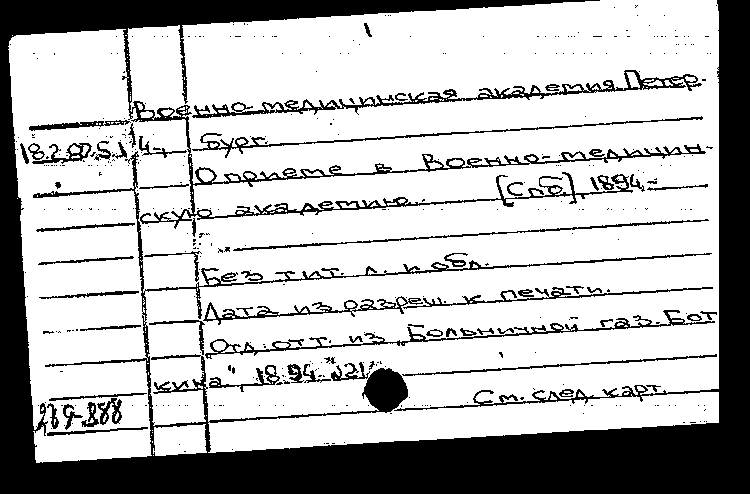 Военно-медицинская академия. Петер-
18.207.5.1 4, бург.
О приеме в Военно-медицин-
скую академию. [Спб], 1894.-
Без тит. л. и обл.
Дата из разреш. к печати.
Отд. отт. из „Больничной газ. Бот
кина", 1894
См. след. карт.